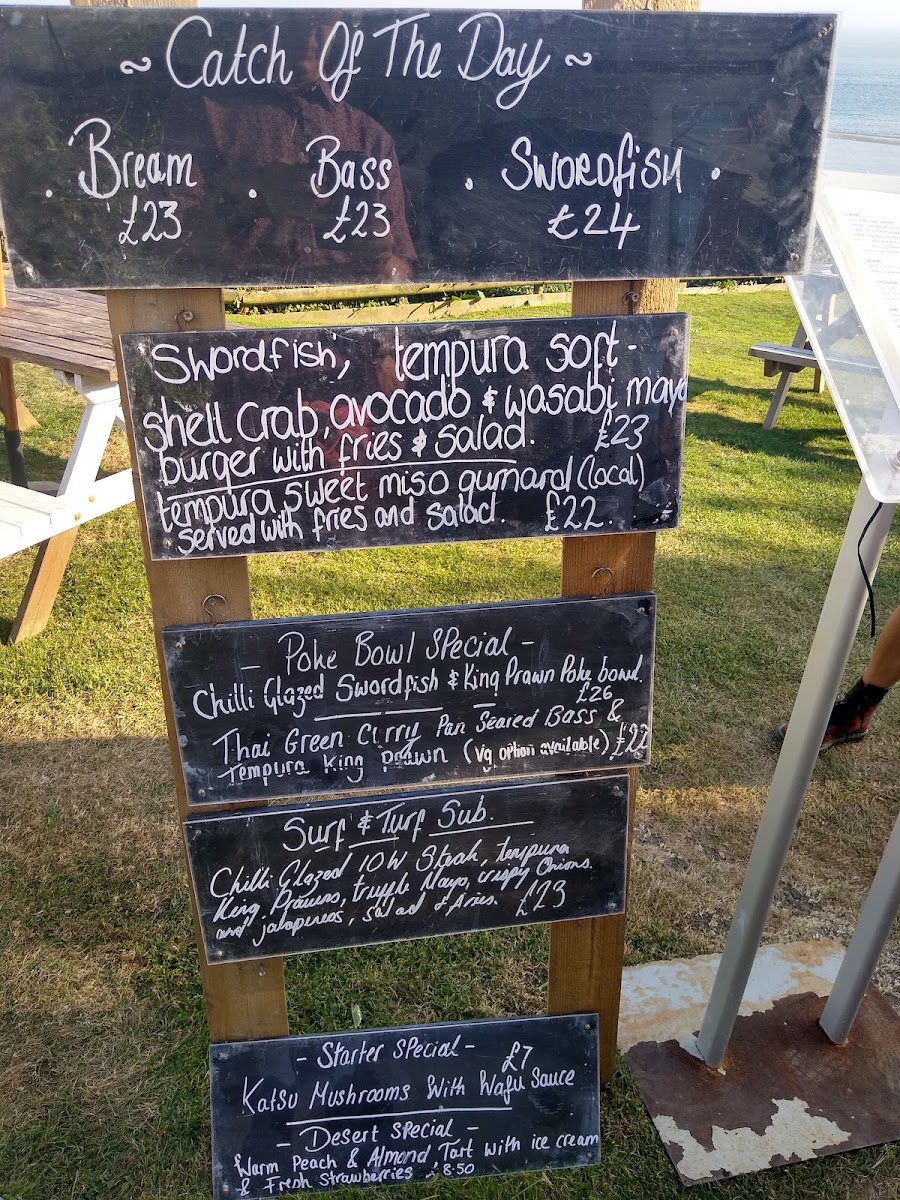 ~ Catch Of The Day ~
· Bream · Bass · Swordfish ·
£23 £23 £24
Swordfish, tempura soft-
shell Crab, avocado & wasabi mayo
burger with fries & salad. £23
tempura sweet miso gurnard (local)
served with fries and salad. £22.
- Poke Bowl Special -
Chilli Glazed Swordfish & King Prawn Poke bowl.
£26
Thai Green Curry Pan Seared Bass &
Tempura King Prawn (Vg option available) £22
Surf & Turf Sub.
Chilli Glazed Steak, tempura
King Prawns, truffle Mayo, crispy Onions.
and jalapenos, salad & Fries.
- Starter Special -
£7
Katsu Mushrooms With Wafu Sauce
- Desert Special -
Warm Peach & Almond Tart with ice cream
& Fresh Strawberries £8.50